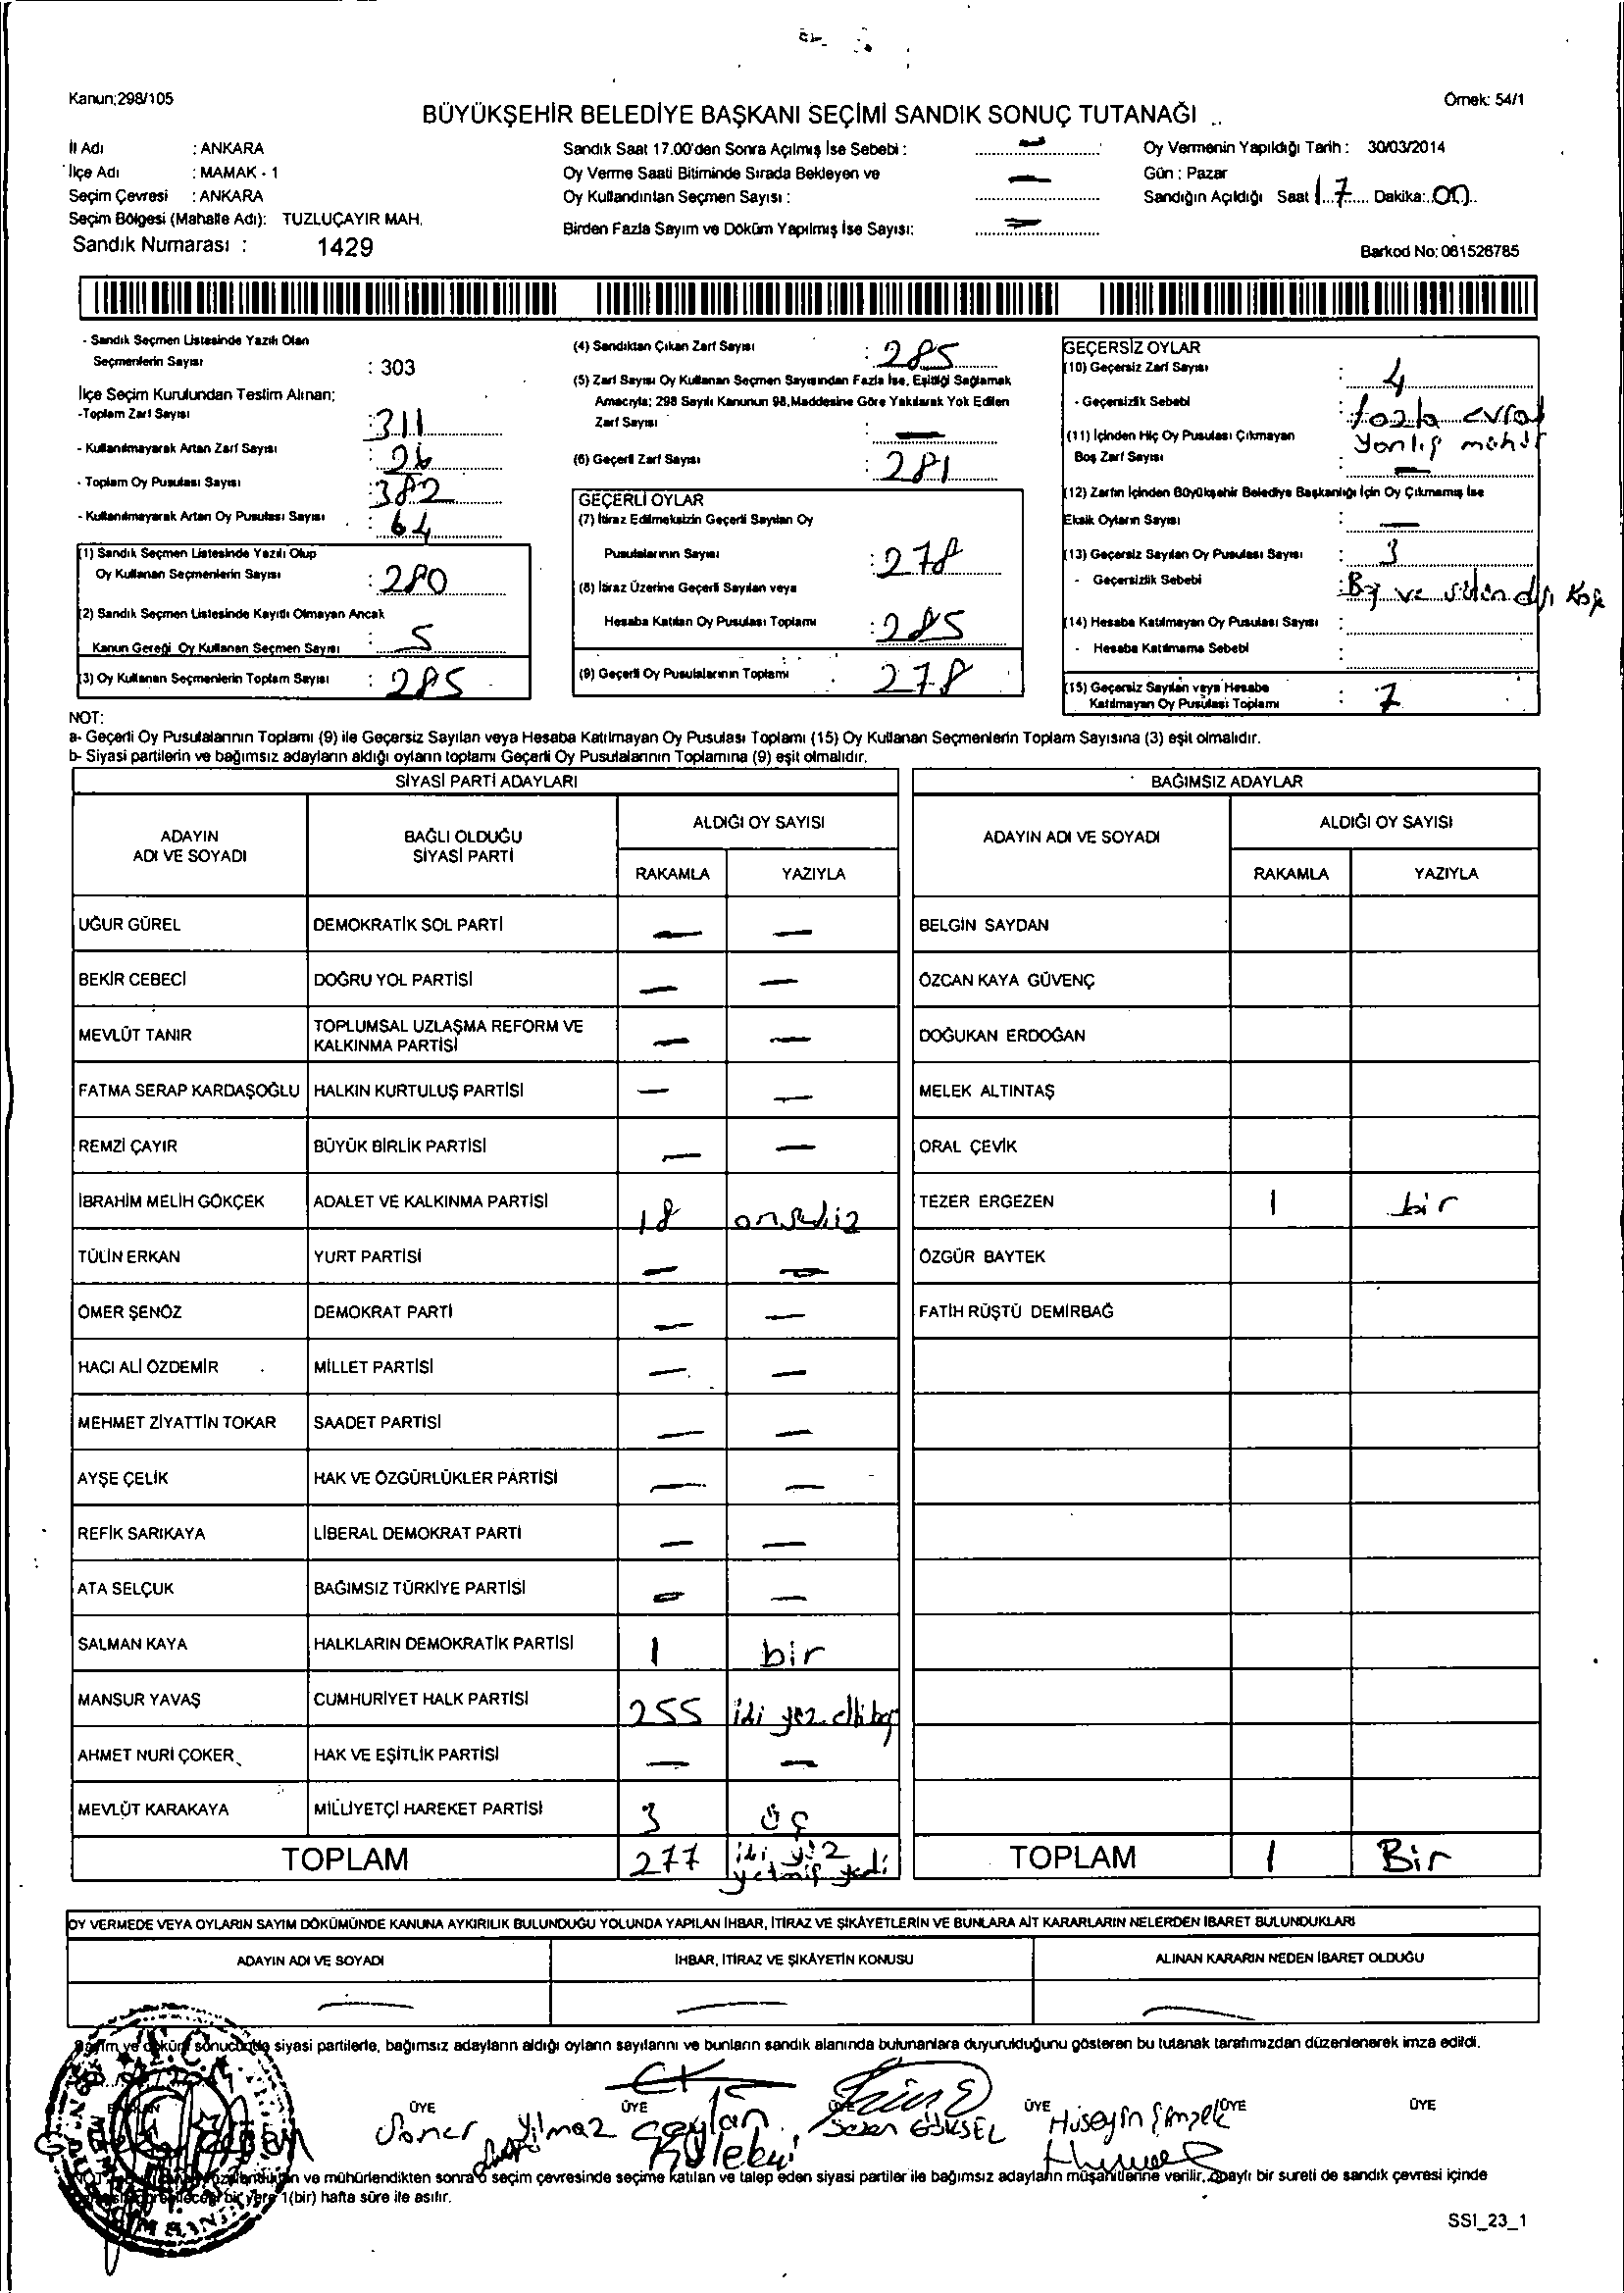 Kanun;298/105
Örnek: 54/1
BÜYÜKŞEHİR BELEDİYE BAŞKANI SEÇİMİ SANDIK SONUÇ TUTANAĞI
İl Adı : ANKARA
İlçe Adı : MAMAK - 1
Seçim Çevresi : ANKARA
Seçim Bölgesi (Mahalle Adı): TUZLUÇAYIR MAH.
Sandık Numarası : 1429
Sandık Saat 17.00'den Sonra Açılmış İse Sebebi : —
Oy Verme Saati Bitiminde Sırada Bekleyen ve
Oy Kullandırılan Seçmen Sayısı : —
Birden Fazla Sayım ve Döküm Yapılmış İse Sayısı: —
Oy Vermenin Yapıldığı Tarih : 30/03/2014
Gün : Pazar
Sandığın Açıldığı Saat 17 Dakika: 00
Barkod No: 061526785
- Sandık Seçmen Listesinde Yazılı Olan
Seçmenlerin Sayısı : 303
İlçe Seçim Kurulundan Teslim Alınan;
-Toplam Zarf Sayısı : 311
- Kullanılmayarak Artan Zarf Sayısı : 26
- Toplam Oy Pusulası Sayısı : 382
- Kullanılmayarak Artan Oy Pusulası Sayısı : 64
(1) Sandık Seçmen Listesinde Yazılı Olup
Oy Kullanan Seçmenlerin Sayısı : 280
(2) Sandık Seçmen Listesinde Kayıtlı Olmayan Ancak
Kanun Gereği Oy Kullanan Seçmen Sayısı : 5
(3) Oy Kullanan Seçmenlerin Toplam Sayısı : 285
(4) Sandıktan Çıkan Zarf Sayısı : 285
(5) Zarf Sayısı Oy Kullanan Seçmen Sayısından Fazla İse, Eşitliği Sağlamak
Amacıyla; 298 Sayılı Kanunun 98.Maddesine Göre Yakılarak Yok Edilen
Zarf Sayısı : —
(6) Geçerli Zarf Sayısı : 281
GEÇERLİ OYLAR
(7) İtiraz Edilmeksizin Geçerli Sayılan Oy
Pusulalarının Sayısı : 278
(8) İtiraz Üzerine Geçerli Sayılan veya
Hesaba Katılan Oy Pusulası Toplamı : 285
(9) Geçerli Oy Pusulalarının Toplamı : 278
GEÇERSİZ OYLAR
(10) Geçersiz Zarf Sayısı : 4
- Geçersizlik Sebebi : fazla evrak
yanlış mühür
(11) İçinden Hiç Oy Pusulası Çıkmayan
Boş Zarf Sayısı : —
(12) Zarfın İçinden Büyükşehir Belediye Başkanlığı İçin Oy Çıkmamış İse
Eksik Oyların Sayısı : —
(13) Geçersiz Sayılan Oy Pusulası Sayısı : 3
- Geçersizlik Sebebi : Boş ve sütun dışı
(14) Hesaba Katılmayan Oy Pusulası Sayısı :
- Hesaba Katılmama Sebebi :
(15) Geçersiz Sayılan veya Hesaba
Katılmayan Oy Pusulası Toplamı : 7
NOT:
a- Geçerli Oy Pusulalarının Toplamı (9) ile Geçersiz Sayılan veya Hesaba Katılmayan Oy Pusulası Toplamı (15) Oy Kullanan Seçmenlerin Toplam Sayısına (3) eşit olmalıdır.
b- Siyasi partilerin ve bağımsız adayların aldığı oyların toplamı Geçerli Oy Pusulalarının Toplamına (9) eşit olmalıdır.
SİYASİ PARTİ ADAYLARI
ADAYIN ADI VE SOYADI BAĞLI OLDUĞU SİYASİ PARTİ ALDIĞI OY SAYISI
RAKAMLA YAZIYLA
UĞUR GÜREL DEMOKRATİK SOL PARTİ — —
BEKİR CEBECİ DOĞRU YOL PARTİSİ — —
MEVLÜT TANIR TOPLUMSAL UZLAŞMA REFORM VE KALKINMA PARTİSİ — —
FATMA SERAP KARDAŞOĞLU HALKIN KURTULUŞ PARTİSİ — —
REMZİ ÇAYIR BÜYÜK BİRLİK PARTİSİ — —
İBRAHİM MELİH GÖKÇEK ADALET VE KALKINMA PARTİSİ 18 onsekiz
TÜLİN ERKAN YURT PARTİSİ — —
ÖMER ŞENÖZ DEMOKRAT PARTİ — —
HACI ALİ ÖZDEMİR MİLLET PARTİSİ — —
MEHMET ZİYATTİN TOKAR SAADET PARTİSİ — —
AYŞE ÇELİK HAK VE ÖZGÜRLÜKLER PARTİSİ — —
REFİK SARIKAYA LİBERAL DEMOKRAT PARTİ — —
ATA SELÇUK BAĞIMSIZ TÜRKİYE PARTİSİ — —
SALMAN KAYA HALKLARIN DEMOKRATİK PARTİSİ 1 bir
MANSUR YAVAŞ CUMHURİYET HALK PARTİSİ 255 iki yüz elli beş
AHMET NURİ ÇOKER HAK VE EŞİTLİK PARTİSİ — —
MEVLÜT KARAKAYA MİLLİYETÇİ HAREKET PARTİSİ 3 üç
TOPLAM 277 iki yüz yetmiş yedi
BAĞIMSIZ ADAYLAR
ADAYIN ADI VE SOYADI ALDIĞI OY SAYISI
RAKAMLA YAZIYLA
BELGİN SAYDAN
ÖZCAN KAYA GÜVENÇ
DOĞUKAN ERDOĞAN
MELEK ALTINTAŞ
ORAL ÇEVİK
TEZER ERGEZEN 1 bir
ÖZGÜR BAYTEK
FATİH RÜŞTÜ DEMİRBAĞ
TOPLAM 1 Bir
OY VERMEDE VEYA OYLARIN SAYIM DÖKÜMÜNDE KANUNA AYKIRILIK BULUNDUĞU YOLUNDA YAPILAN İHBAR, İTİRAZ VE ŞİKÂYETLERİN VE BUNLARA AİT KARARLARIN NELERDEN İBARET BULUNDUKLARI
ADAYIN ADI VE SOYADI İHBAR, İTİRAZ VE ŞİKÂYETİN KONUSU ALINAN KARARIN NEDEN İBARET OLDUĞU
— — —
Sayım ve döküm sonucunda siyasi partilerle, bağımsız adayların aldığı oyların sayılarını ve bunların sandık alanında bulunanlara duyurulduğunu gösteren bu tutanak tarafımızdan düzenlenerek imza edildi.
ÜYE ÜYE ÜYE ÜYE ÜYE ÜYE
Soner Yılmaz Ceylan Seren GÖKSEL Hüseyin Şimşek
ve mühürlendikten sonra o seçim çevresinde seçime katılan ve talep eden siyasi partiler ile bağımsız adayların müşahitlerine verilir, onaylı bir sureti de sandık çevresi içinde
bir yere 1(bir) hafta süre ile asılır.
SSI_23_1